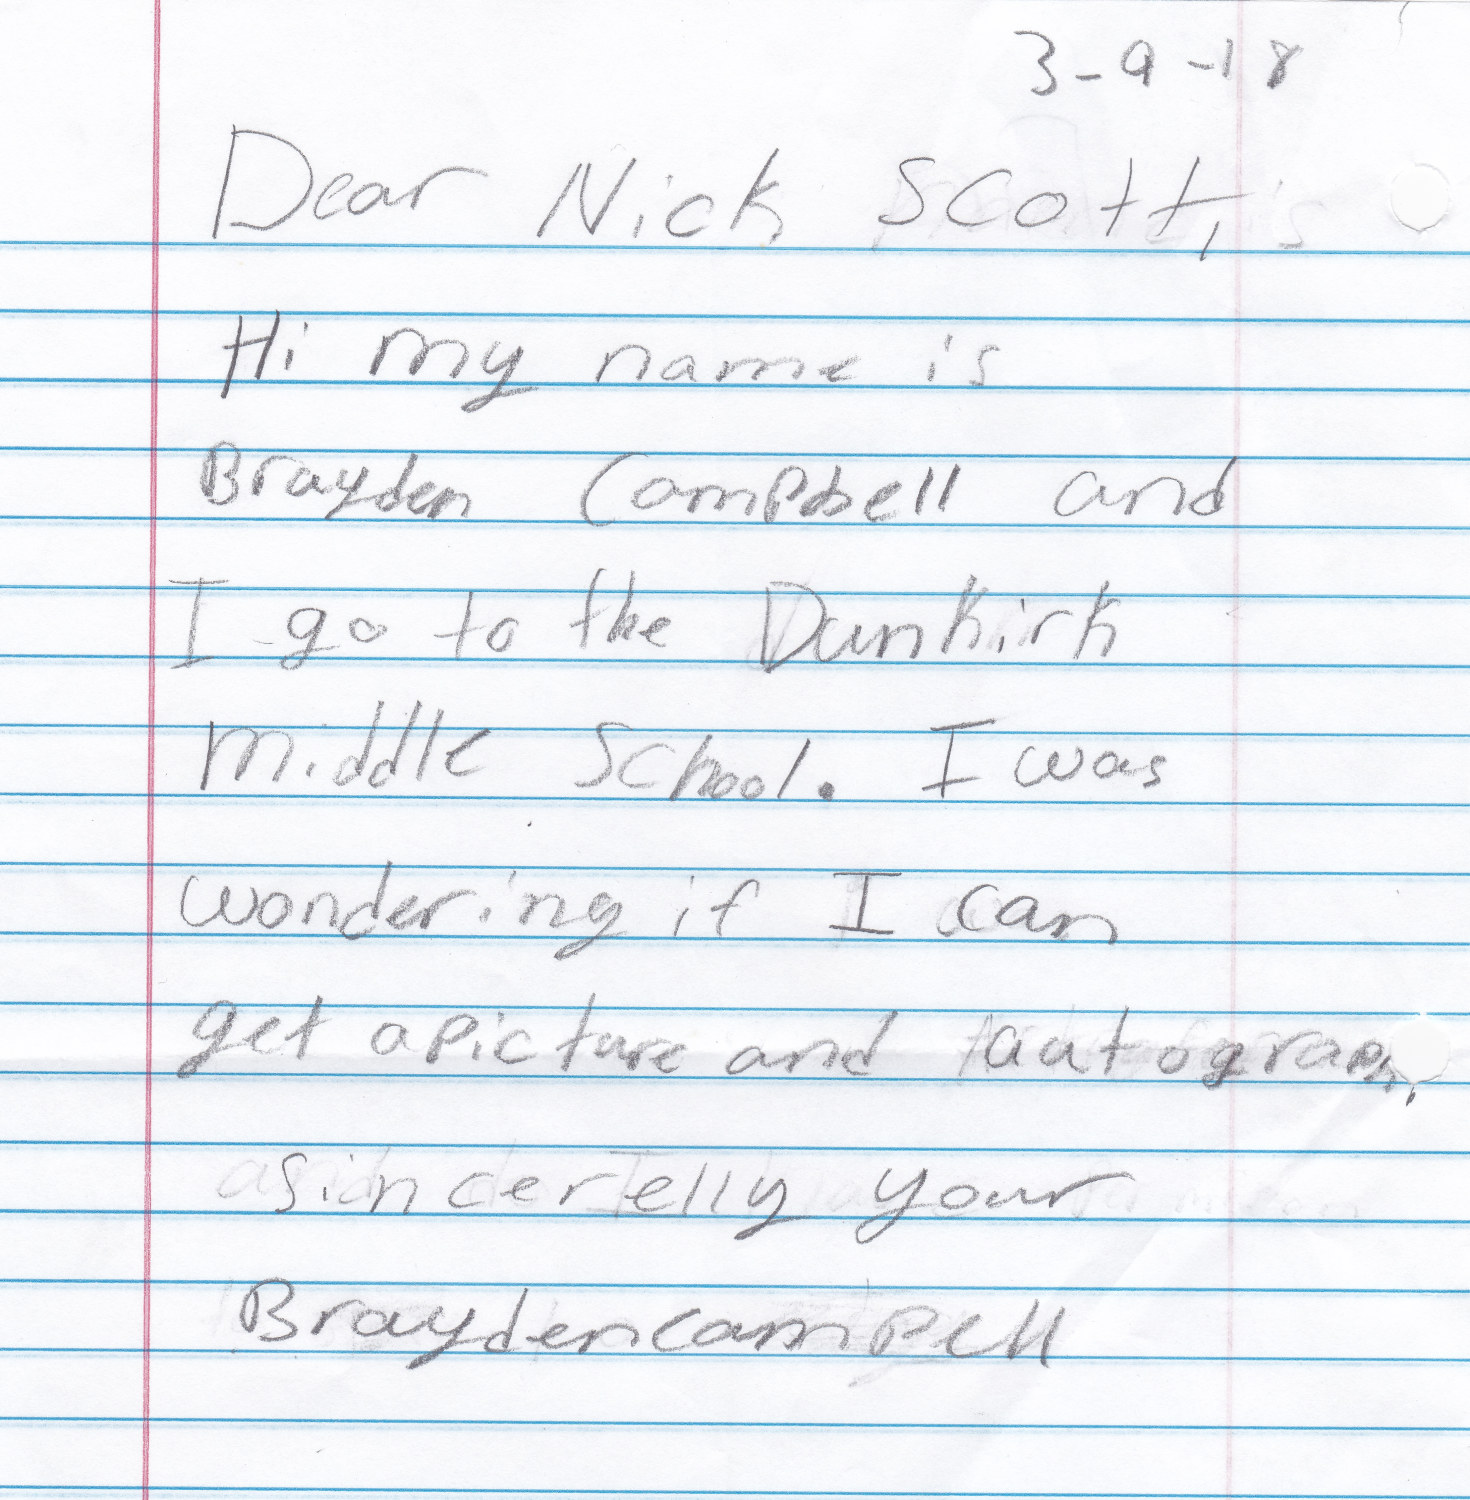 3-9-18
Dear Nick Scott,
Hi my name is
Brayden Campbell and
I go to the Dunkirk
middle School. I was
wondering if I can
get a picture and autograph,
sincerelly your
Brayden campell